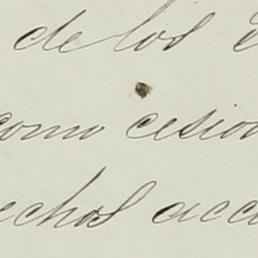 de los
como cesion
echos acc